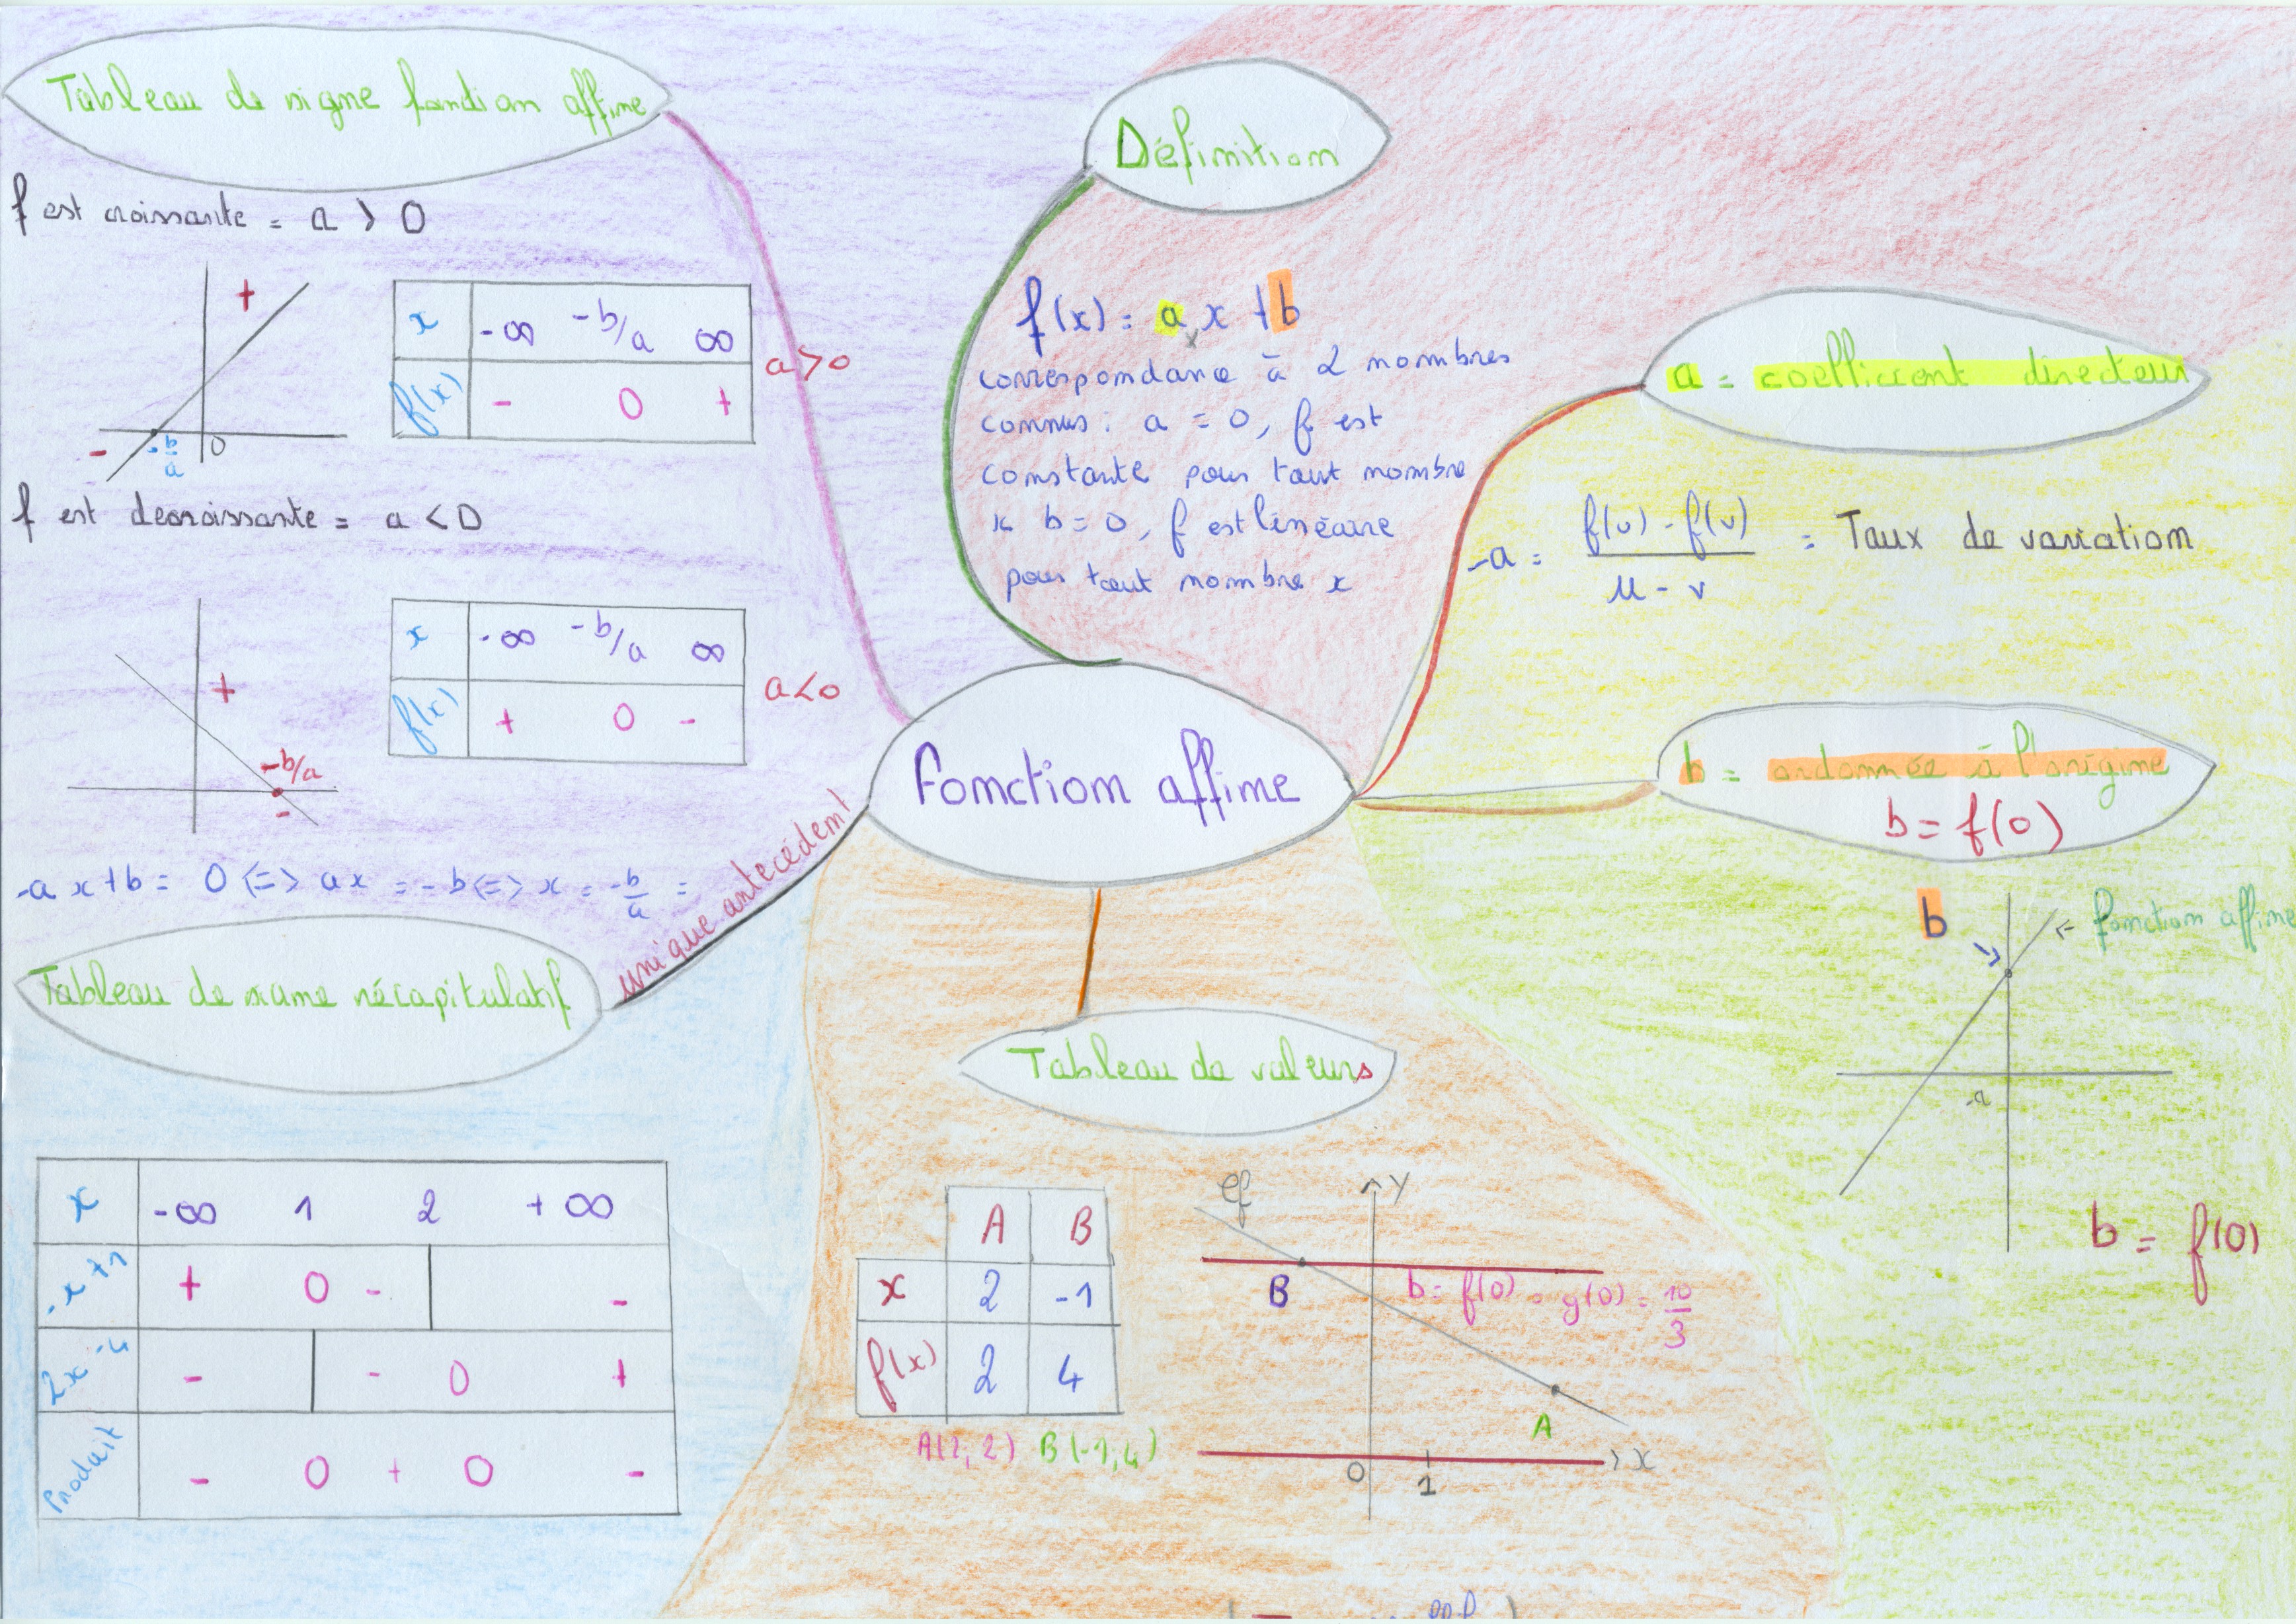 Tableau de signe fonction affine
f est croissante = a > 0
+
-
-b/a
0
x -∞ -b/a ∞
f(x) - 0 +
a>0
f est decroissante = a < 0
+
-b/a
-
x -∞ -b/a ∞
f(x) + 0 -
a<0
-ax+b = 0 <=> ax = -b <=> x = -b/a =
Définition
f(x) = a x + b
x
correspondance à 2 nombres
connus : a = 0, f est
constante pour tout nombre
x b = 0, f est linéaire
pour tout nombre x
a = coefficient directeur
-a = f(u) - f(v) / u - v = Taux de variation
Fonction affine
b = ordonnée à l'origine
b = f(0)
b
<- fonction affine
b = f(0)
unique antecédent
Tableau de signe récapitulatif
x -∞ 1 2 +∞
-x+1 + 0 - -
2x-4 - - 0 +
Produit - 0 + 0 -
Tableau de valeurs
A B
x 2 -1
f(x) 2 4
A(2; 2) B(-1,4)
Cf
Y
B
b = f(0) = y(0) = 10/3
A
0
1
x